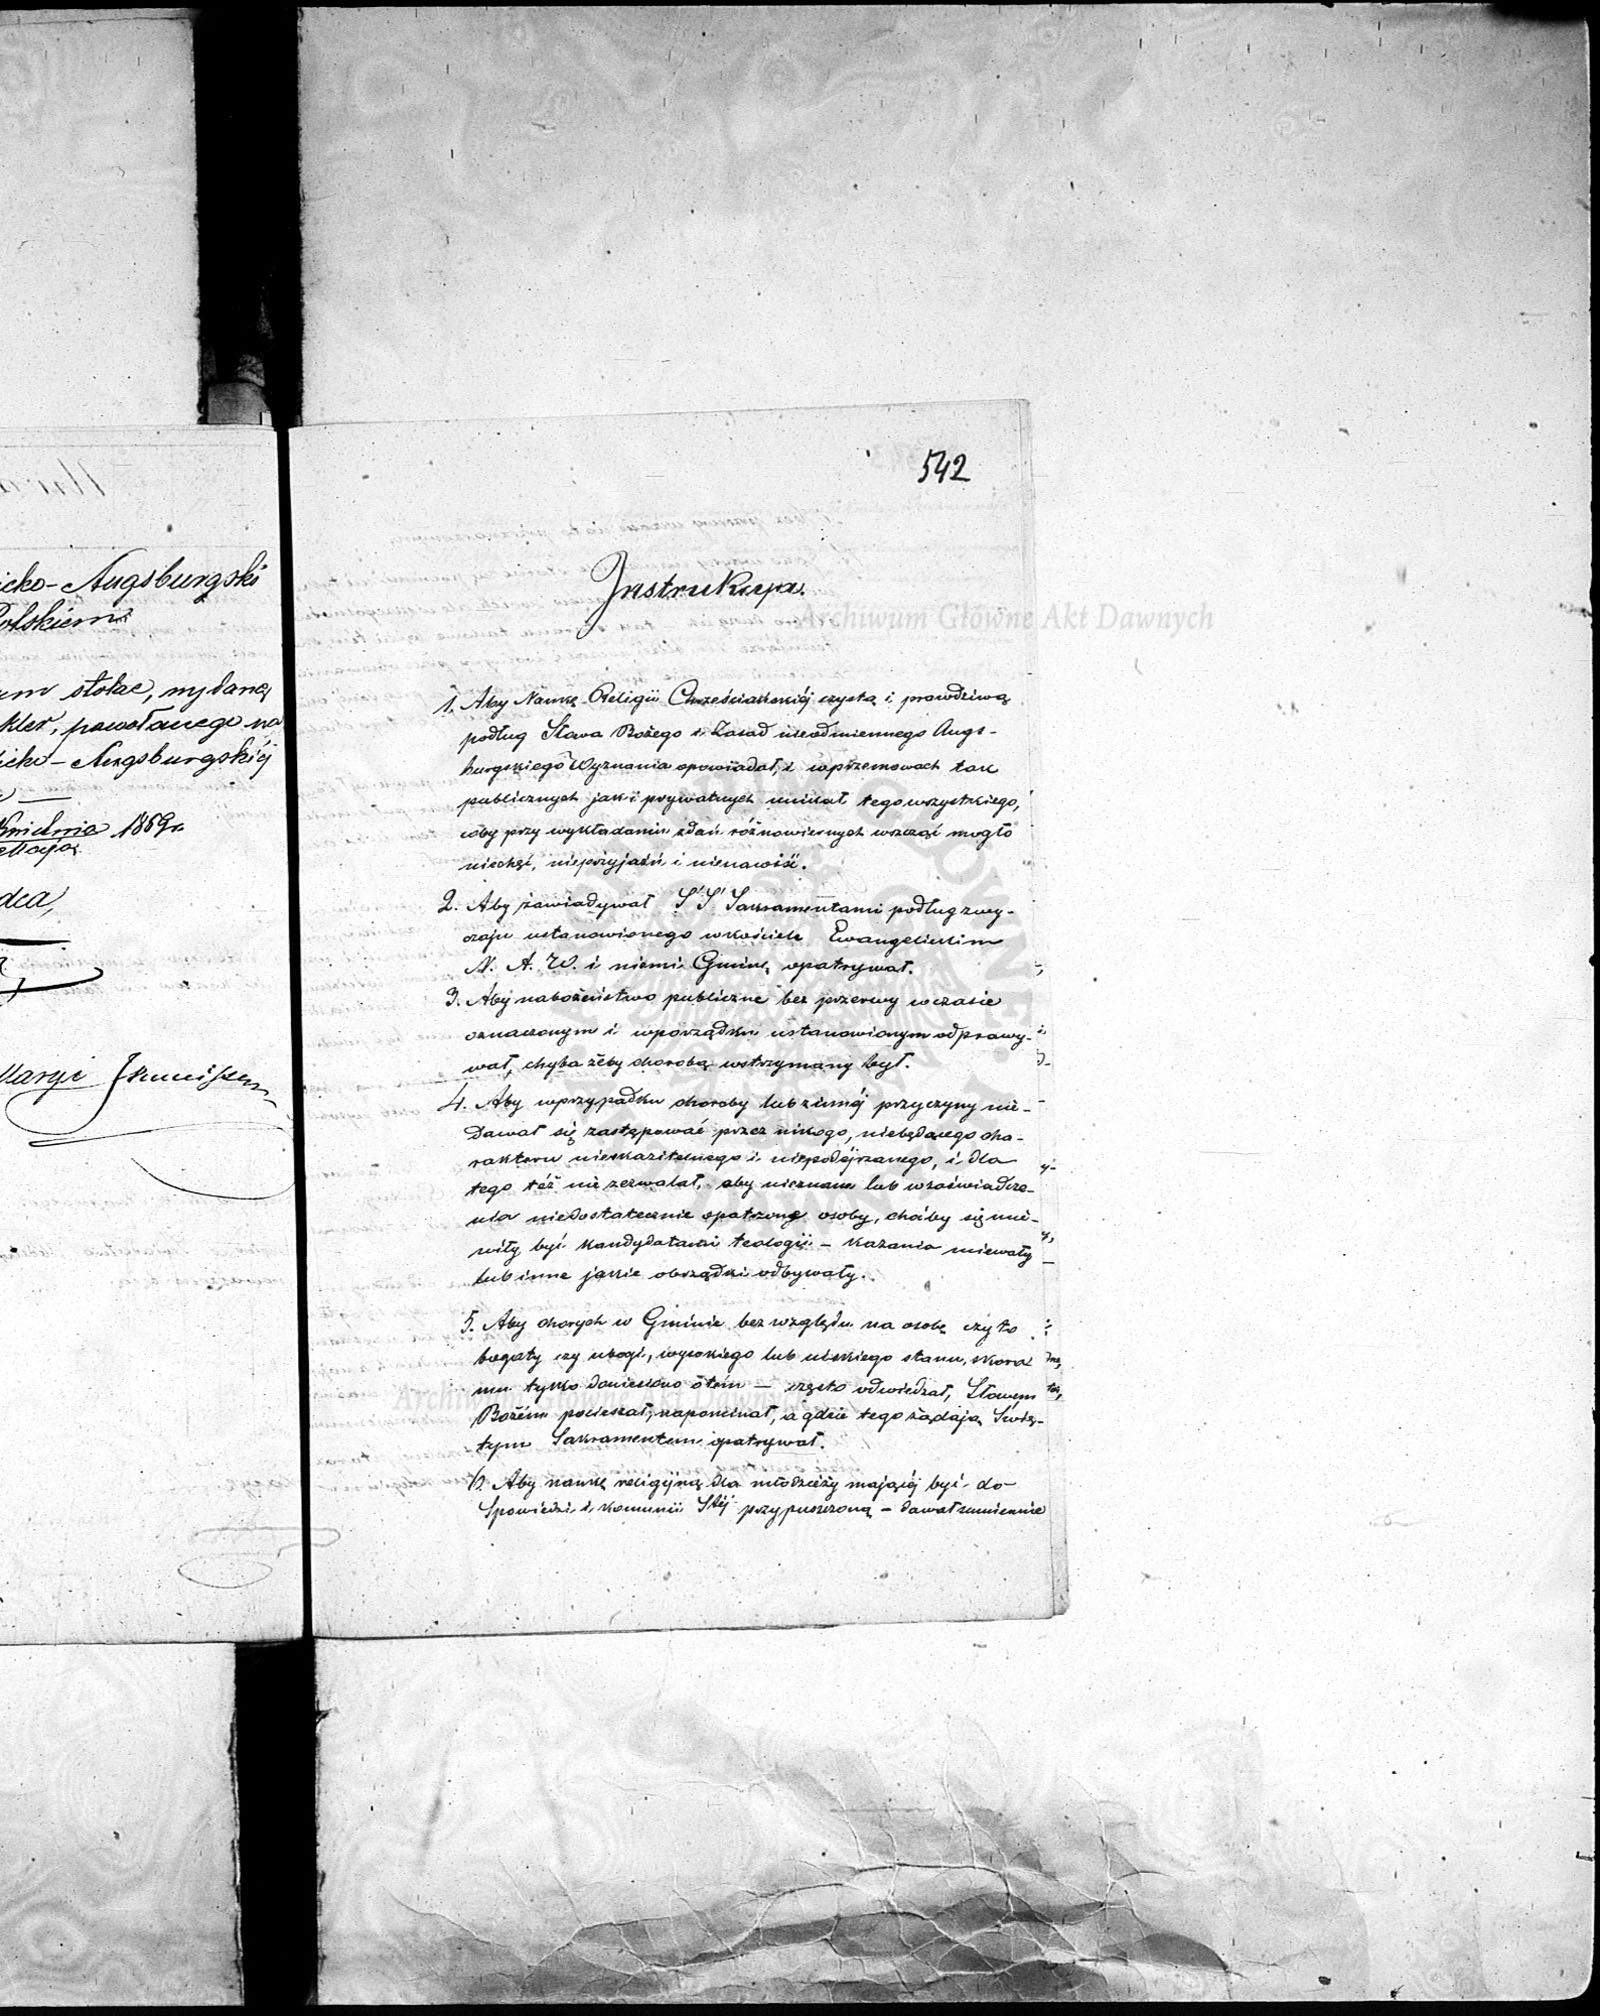 icko-Augsburgski
Polskiem
um stołae, wydaną
kler, powołanego na
icko-Augsburgskiéj
Kwietnia 1869 r.
Maja
dca,
Maryi
542
Instrukcya.
1. Aby Naukę Religii Chrześciańskiéj czystą i prawdziwą
podług Słowa Bożego i Zasad nieodmiennego Augs-
burgskiego Wyznania opowiadał, i w przemowach tak
publicznych jak i prywatnych unikał tego wszystkiego,
coby przy wykładaniu zdań różnowiernych wszcząć mogło
niechęć, nieprzyjaźń i nienawiść.
2. Aby zawiadywał S' S' Sakramentami podług zwy-
czaju ustanowionego w kościele Ewangelickim
N. A. W. i niemi Gminę opatrywał.
3. Aby nabożeństwo publiczne bez przerwy w czasie
oznaczonym i w porządku ustanowionym odprawy-
wał, chyba żeby chorobą wstrzymany był.
4. Aby w przypadku choroby lub innéj przyczyny nie-
dawał się zastępować przez nikogo, niebędącego cha-
rakteru nieskazitelnego i niepodéjrzanego, i dla
tego też nie zezwalał, aby nieznane lub w zaświadcze-
nia niedostatecznie opatrzone osoby, choćby się mie-
niły być Kandydatami teologii – kazania miewały
lub inne jakie obrządki odbywały.
5. Aby chorych w Gminie bez względu na osobę czy to
bogaty czy ubogi, wysokiego lub niskiego stanu, skoro
mu tylko doniesiono o tém — często odwiedzał, Słowem
Bożém pocieszał, napominał, a gdzie tego żądają Świę-
tym Sakramentem opatrywał.
6. Aby naukę religijną dla młodzieży mającéj być do
Spowiedzi i Komunii Stéj przypuszczoną – dawał sumiennie
Archiwum Główne Akt Dawnych